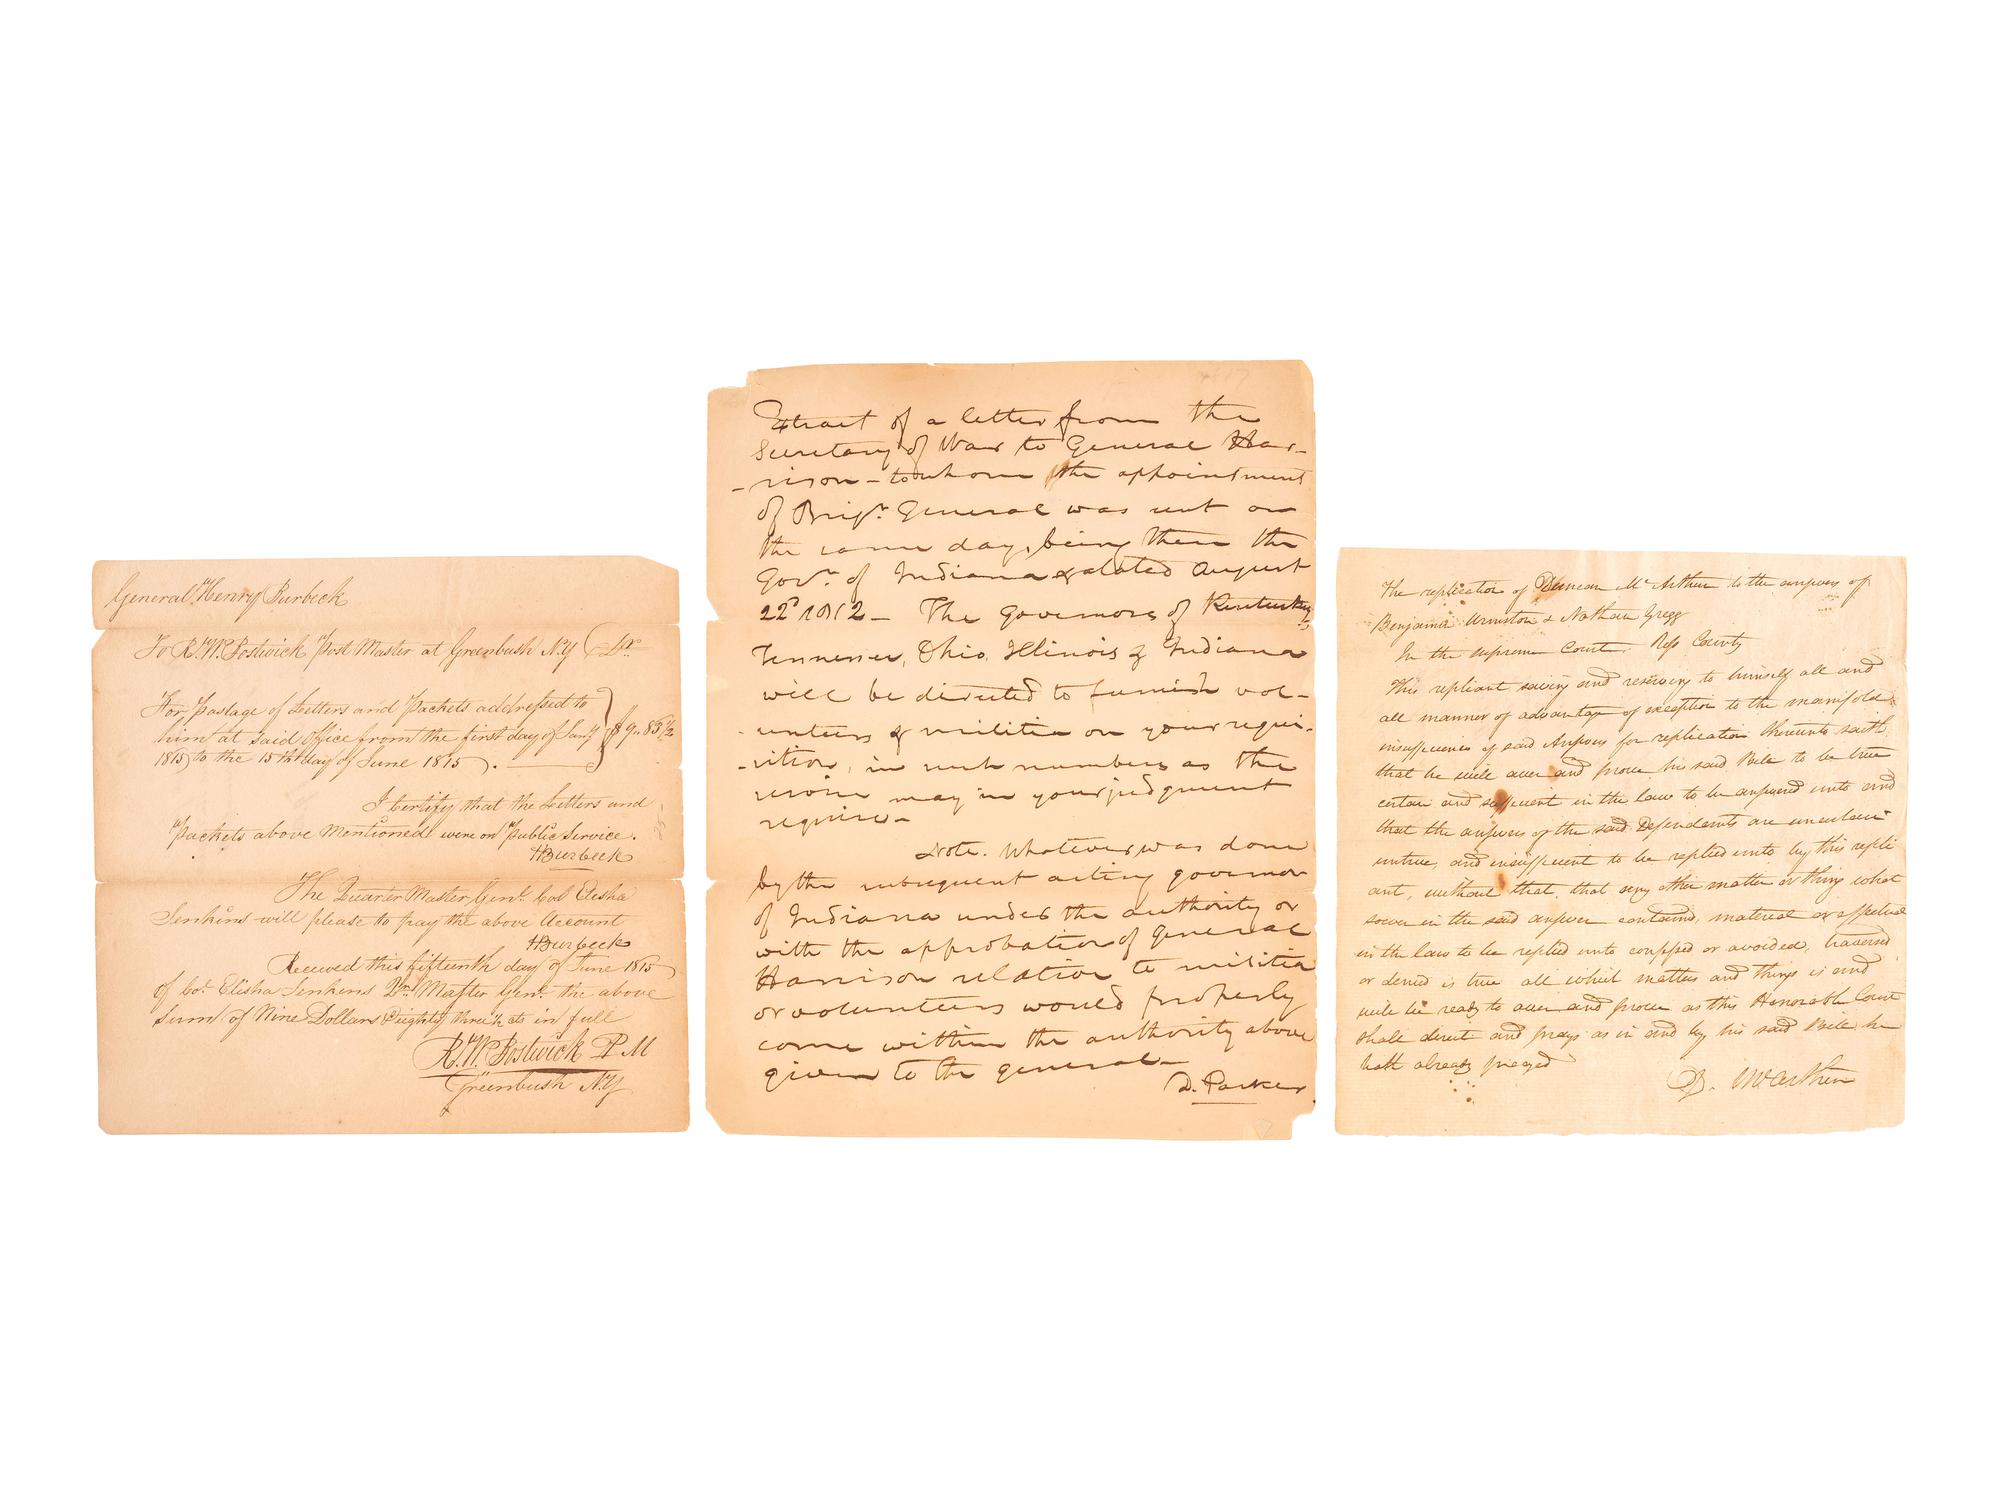 General Henry Burbeck
To R. W. Bostwick Post Master at Greenbush N.Y Dr
For Postage of Letters and Packets addressed to
him at said Office from the first day of Jany $9..83½
1815 to the 15th day of June 1815.
I Certify that the Letters and
Packets above mentioned were on Public Service.
HBurbeck
The Quarter Master Genl. Col Elisha
Jenkins will please to pay the above Account
HBurbeck
Received this fifteenth day of June 1815
of Col. Elisha Jenkins Qr. Master Genl. the above
Sum of Nine Dollars & eighty three ½ cts in full
R. W. Bostwick P M
Greenbush N.Y
Extract of a letter from the
Secretary of War to General Har-
-rison - to whom the appointment
of Brigr. General was sent on
the same day, being then the
Govr. of Indiana & dated August
22d 1812 - The governors of Kentucky,
Tennessee, Ohio, Illinois & Indiana
will be directed to furnish vol-
-unteers & militia on your requi-
-sition, in such numbers as the
service may in your judgment
require -
Note. Whatever was done
by the subsequent acting governor
of Indiana under the authority or
with the approbation of General
Harrison relative to militia
or volunteers would properly
come within the authority above
given to the general -
D. Parker
The replication of Duncan McArthur to the answers of
Benjamin Urmston & Nathan Gregg
In the supreme Court Ross County
This repliant saving and reserving to himself all and
all manner of advantage of exception to the manifold
insufficiencies of said Answers for replication thereunto saith
that he will aver and prove his said Bill to be true
certain and sufficient in the law to be answered unto and
that the answers of the said Defendants are uncertain
untrue and insufficient to be replied unto by this repli
ant, without that, that any other matter or thing what
soever in the said answer contained, material or effectual
in the law to be replied unto confessed or avoided, traversed
or denied is true all which matters and things is and
will be ready to aver and prove as this Honorable Court
shall direct and prays as in and by his said Bill he
hath already prayed
D. McArthur